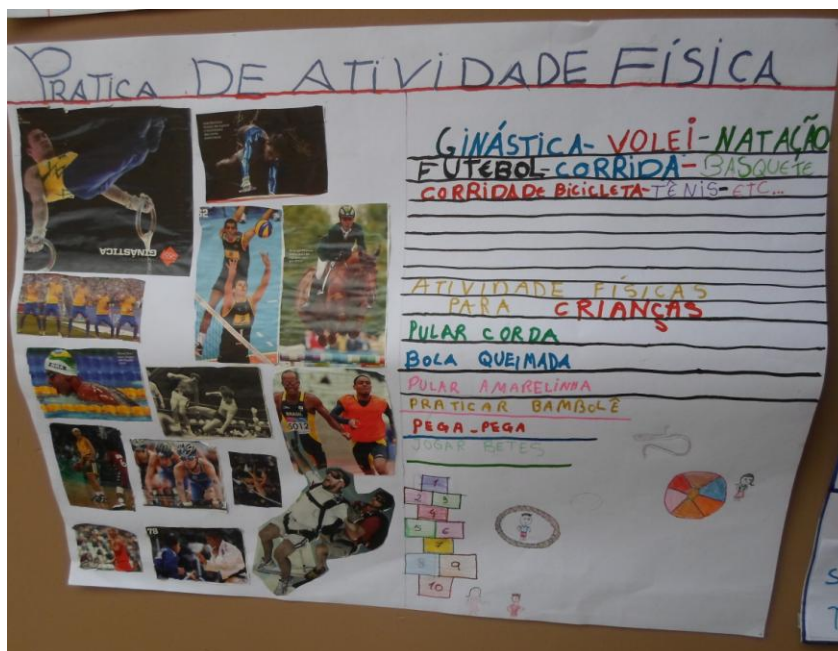 PRATICA DE ATIVIDADE FÍSICA
GINÁSTICA- VOLEI-NATAÇÃO
FUTEBOL-CORRIDA-BASQUETE
CORRIDA DE BICICLETA-TÊNIS-ETC...
ATIVIDADE FÍSICAS
PARA CRIANÇAS
PULAR CORDA
BOLA QUEIMADA
PULAR AMARELINHA
PRATICAR BAMBOLÊ
PEGA-PEGA
JOGAR BETES
GINÁSTICA
52
BRASIL
6012
78
1
2 3
4
5 6
7
8 9
10